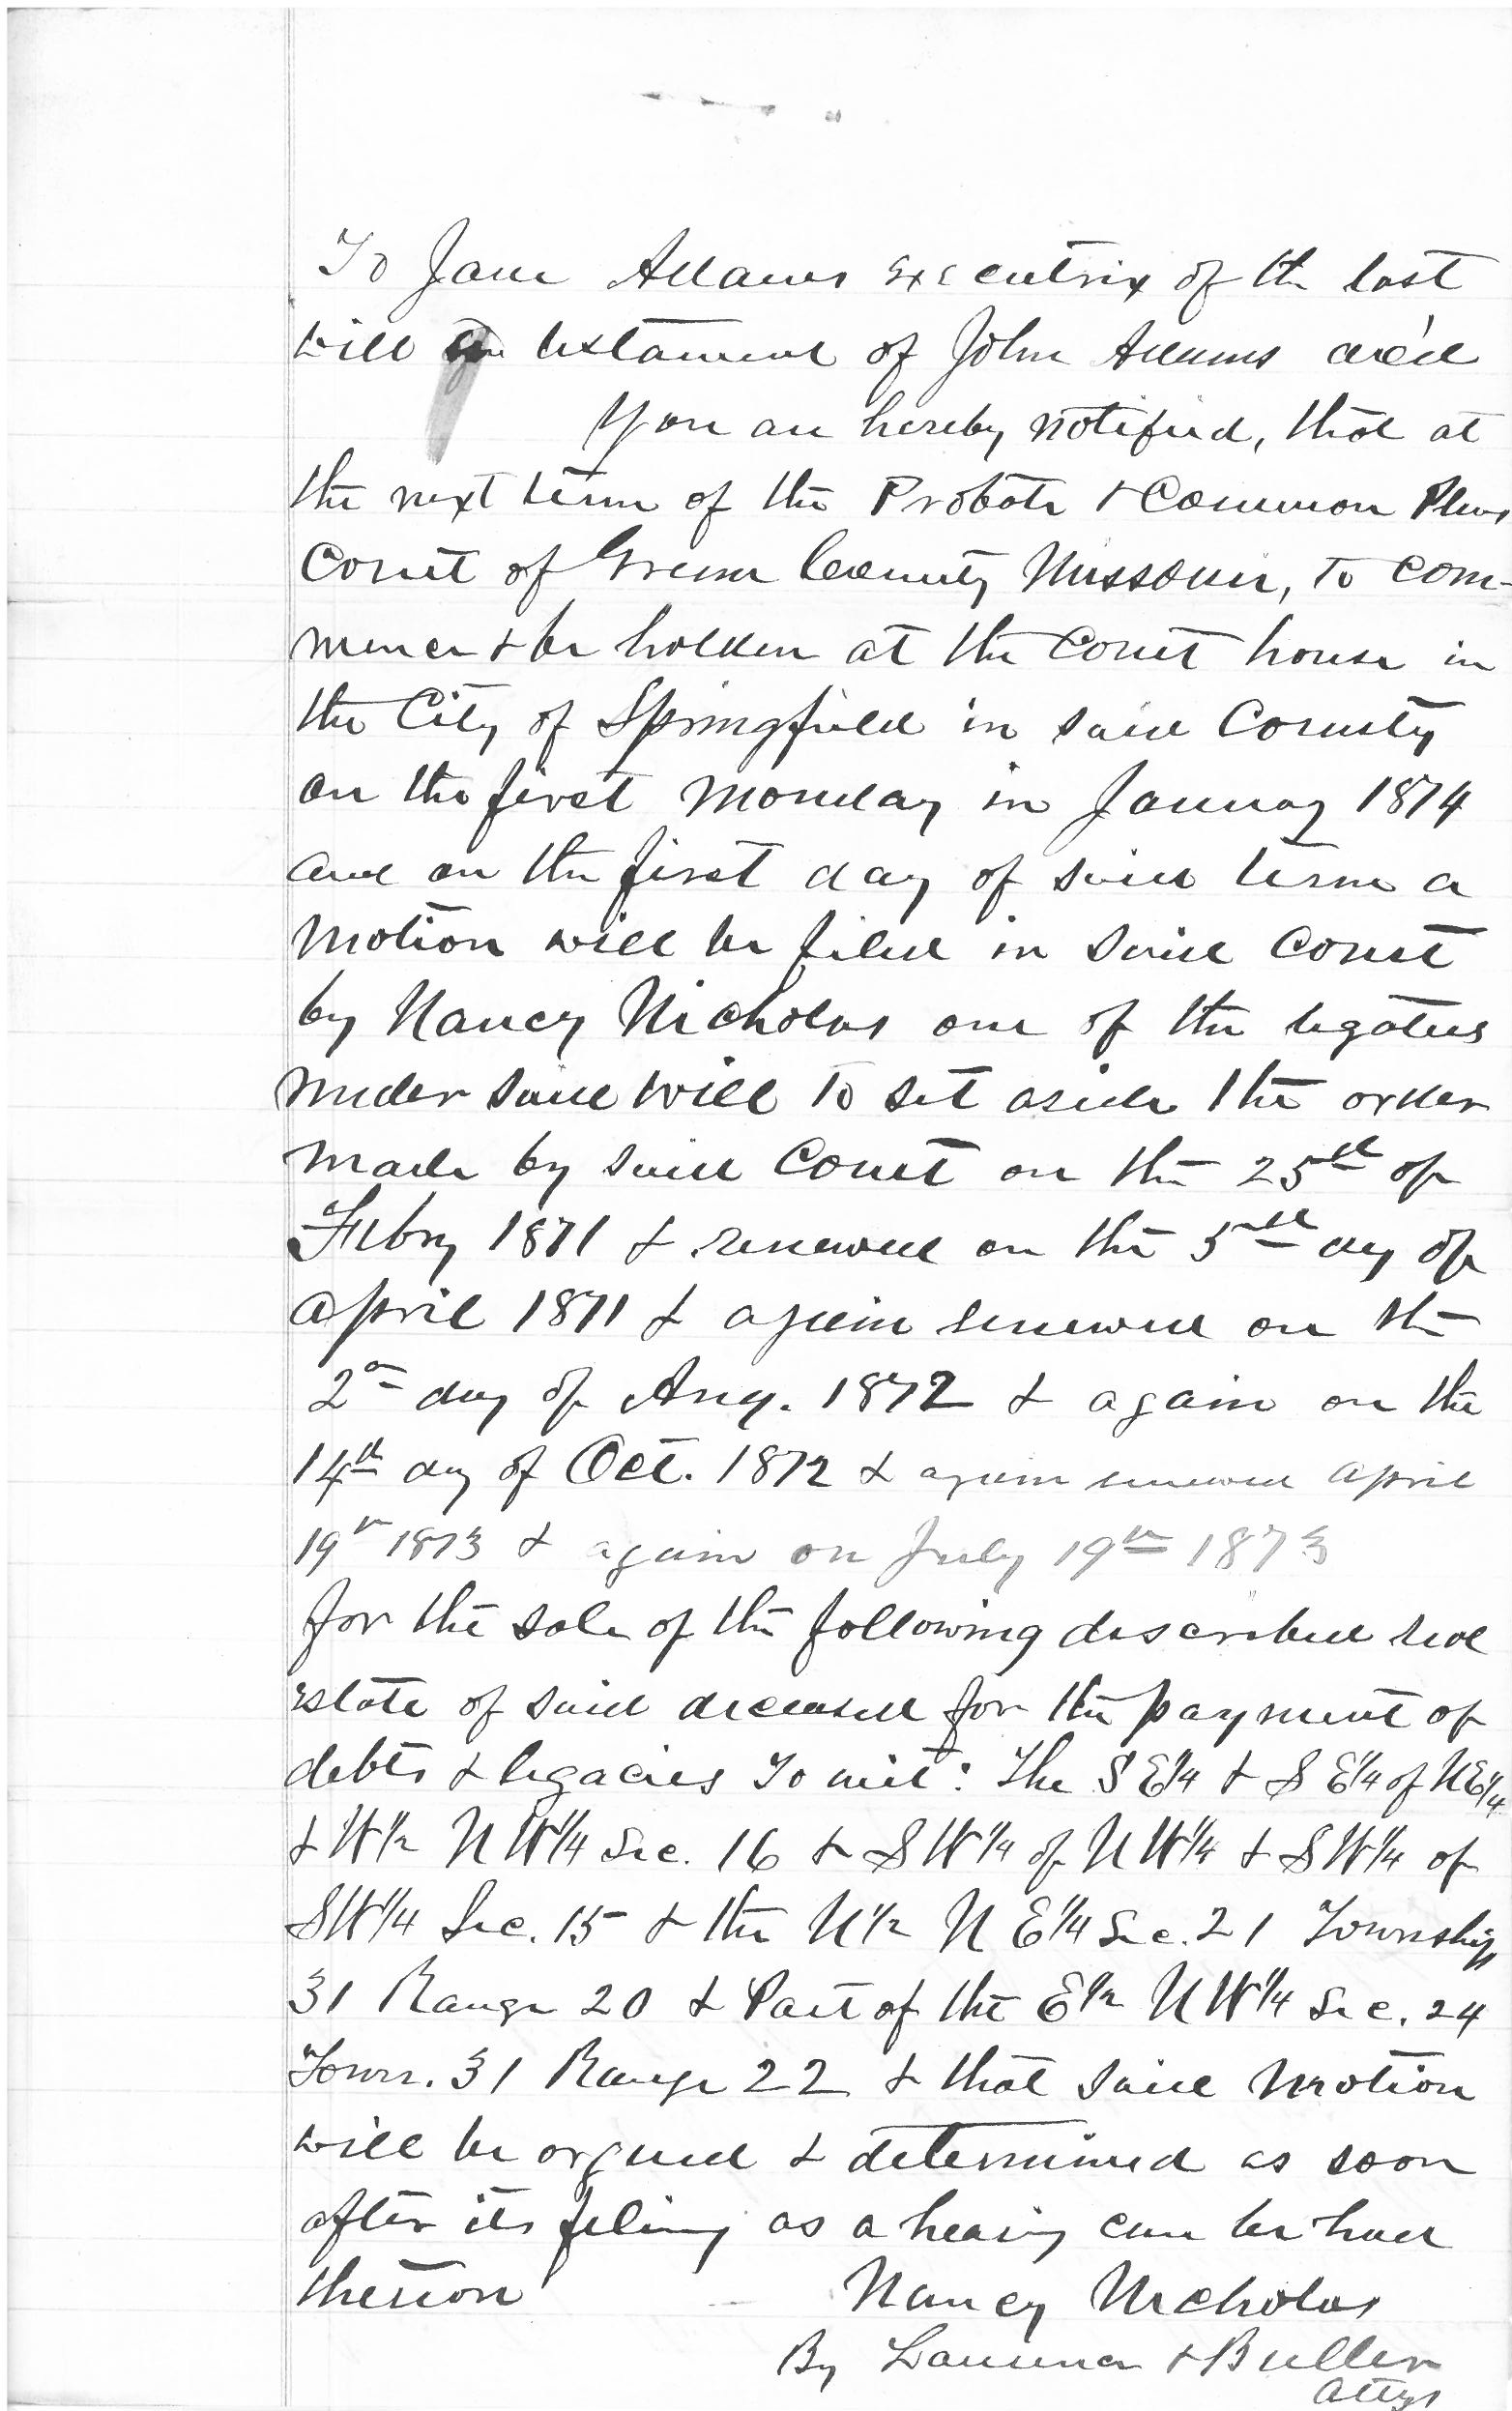 To Jane Adams executrix of the last
will & testament of John Adams dec'd
You are hereby notified, that at
the next term of the Probate & Common Pleas
Court of Greene County Missouri, to com-
mence & be holden at the Court house in
the City of Springfield in said County
on the first Monday in January 1874
and on the first day of said term a
motion will be filed in said Court
by Nancy Nicholas one of the legatees
under said will to set aside the order
made by said Court on the 25th of
Feby 1871 & renewed on the 5th day of
April 1871 & again renewed on the
2nd day of Aug. 1872 & again on the
14th day of Oct. 1872 & again renewed April
19th 1873 & again on July 19th 1873
for the sale of the following described real
estate of said deceased for the payment of
debts & legacies To wit: The S E 1/4 & S E 1/4 of N E 1/4
& W 1/2 N W 1/4 Sec. 16 & S W 1/4 of N W 1/4 & S W 1/4 of
S W 1/4 Sec. 15 & the N 1/2 N E 1/4 Sec. 21 Township
31 Range 20 & Part of the E 1/2 N W 1/4 Sec. 24
Town. 31 Range 22 & that said motion
will be argued & determined as soon
after its filing as a hearing can be had
thereon
Nancy Nicholas
By & Butler
Attys